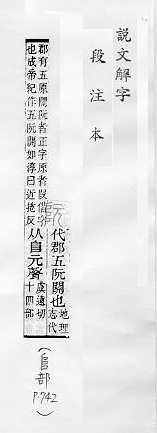 說文解字
段注本
阮 代郡五阮關也 地理志代
郡有五原關阮者正字原者叚借字也成帝紀作五阮關如淳曰近捲反 从𨸏元聲 虞遠切十四部
(𨸏部 P.742)